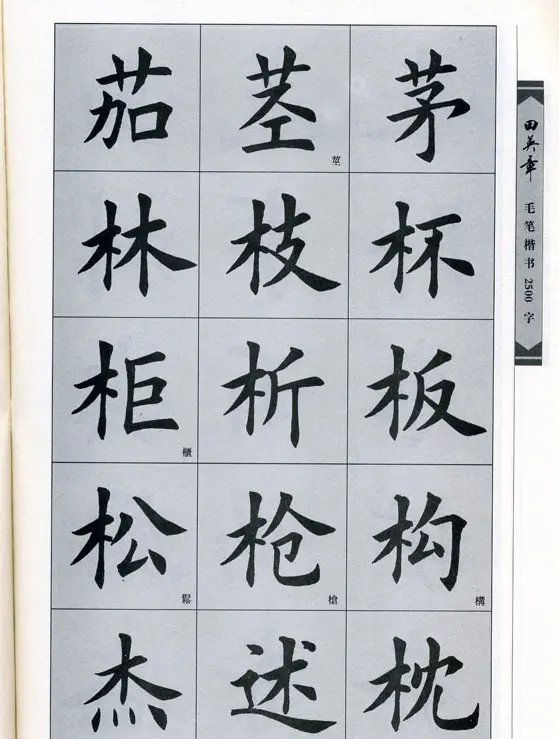 茄 茎 莖 茅
林 枝 杯
柜 櫃 析 板
松 鬆 枪 槍 构 構
杰 述 枕
田英章
毛笔楷书2500字